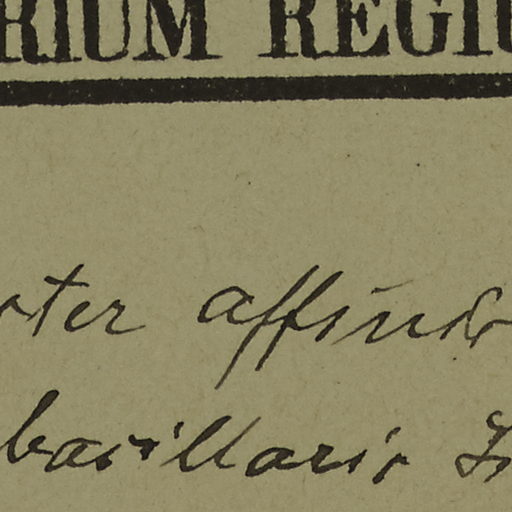 RIUM REGIU
ter affinis
basillaris